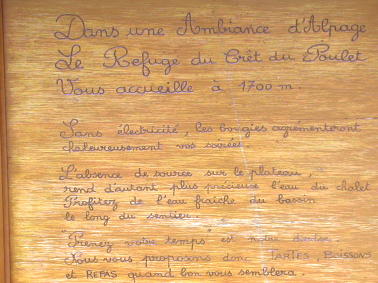 Dans une Ambiance d'Alpage
Le Refuge du Crêt du Poulet
Vous accueille à 1700 m.
Sans électricité, les bougies agrémenteront
chaleureusement vos soirées.
L'absence de source sur le plateau,
rend d'autant plus précieuse l'eau du chalet
Profitez de l'eau fraîche du bassin
le long du sentier.
"Prenez votre temps" est notre devise.
Nous vous proposons donc TARTES, BOISSONS
et REPAS quand bon vous semblera.